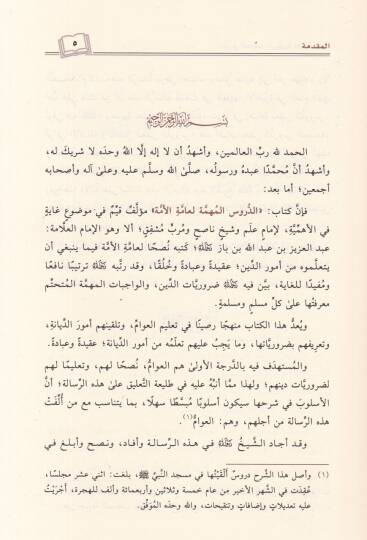 المقدمة
٥
بسم الله الرحمن الرحيم
الحمد لله ربِّ العالمين، وأشهدُ أن لا إله إلَّا اللهُ وحدَه لا شريكَ له،
وأشهدُ أنَّ محمَّدًا عبدُه ورسولُه، صلَّىٰ اللهُ وسلَّم عليه وعلىٰ آله وأصحابه
أجمعين؛ أما بعد:
فإنَّ كتابَ: «الدُّروس المُهمَّة لعامَّةِ الأمَّة» مؤلَّفٌ قيِّمٌ في موضوعٍ غايةٍ
في الأهمِّيَّة، لإمام عَلَمٍ وشيخٍ ناصحٍ ومُربٍّ مُشفِقٍ؛ ألا وهو الإمام العلَّامة:
عبد العزيز بن عبد الله بن باز ﵀؛ كتبه نُصحًا لعامَّةِ الأمَّة فيما ينبغي أن
يتعلَّموه من أمور الدِّين؛ عقيدةً وعبادةً وخُلُقًا، وقد رتَّبه ﵀ ترتيبًا نافعًا
ومُفيدًا للغاية، بيَّن فيه ضروريَّات الدِّين، والواجبات المهمَّة المُتحتِّم
معرفتُها علىٰ كلِّ مسلمٍ ومسلمةٍ.
ويُعدُّ هذا الكتاب منهجًا رصينًا في تعليم العوامِّ، وتلقينهم أمورَ الدِّيانة،
وتعريفهم بضروريَّاتها، وما يَجِبُ عليهم تعلُّمُه من أمور الدِّيانة؛ عقيدةً وعبادةً.
والمُستهدَف فيه بالدَّرجة الأولىٰ هم العوامُّ، نُصحًا لهم، وتعليمًا لهم
لضروريَّات دينهم؛ ولهذا ممَّا أنبِّهُ عليه في طليعة التَّعليق علىٰ هذه الرِّسالة؛ أنَّ
الأسلوبَ في شرحها سيكون أسلوبًا مُبسَّطًا سهلًا، بما يتناسب مع من أُلِّفَتْ
هذه الرِّسالة من أجلهم، وهم: العوامُّ(١).
وقـد أجـاد الشَّيـخُ ﵀ فـي هـذه الرِّسـالة وأفـاد، ونـصـح وأبلـغ فـي
(١) وأصل هذا الشَّرح دروسٌ ألقيتُها في مسجد النَّبيِّ ﷺ، بلغت: اثني عشر مجلسًا،
عُقِدَت في الشَّهر الأخير من عام خمسة وثلاثين وأربعمائة وألف للهجرة، أَجْرَيْتُ
عليه تعديلاتٍ وإضافاتٍ وتنقيحات، والله وحدَه المُوَفِّقُ.